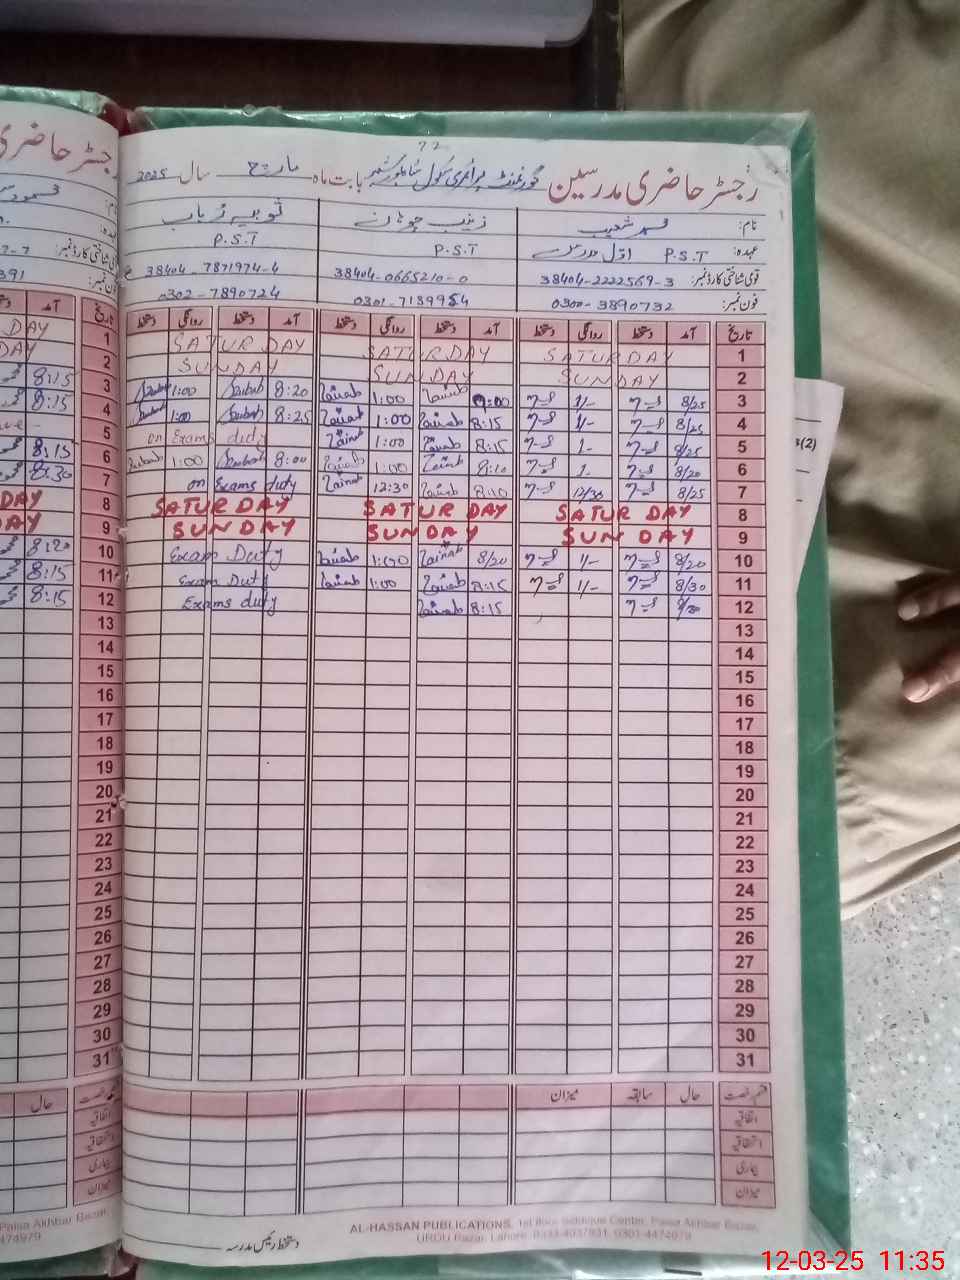 72
رجسٹر حاضری مدرسین گورنمنٹ پرائمری سکول بابت ماہ مارچ سال 2025
نام: محمد شعیب زینب ثوبیہ رباب
عہدہ: P.S.T اوّل مدرس P.S.T P.S.T
قومی شناختی کارڈ نمبر: 38404-2222569-3 38404-0665210-0 38404-7871974-4
فون نمبر: 0300-3890732 0301-7139954 0302-7890724
تاریخ آمد دستخط روانگی دستخط آمد دستخط روانگی دستخط آمد دستخط روانگی دستخط
1 SATURDAY SATURDAY SATURDAY
2 SUNDAY SUNDAY SUNDAY
3 8/25 1/- 9:00 Zainab 1:00 Zainab 8:20 Rubab 1:00 Rubab 8:15
4 8/25 1/- 8:15 Zainab 1:00 Zainab 8:25 Rubab 1:00 Rubab 8:15
5 8/25 1- 8:15 Zainab 1:00 Zainab on Exams duty
6 8/20 1- 8:10 Zainab 1:00 Zainab 8:00 Rubab 1:00 Rubab 8:15
7 8/25 12/30 8:10 Zainab 12:30 Zainab on Exams duty 8:30
8 SATURDAY SATURDAY SATURDAY
9 SUNDAY SUNDAY SUNDAY
10 8/20 1/- 8/20 Zainab 1:00 Zainab Exam Duty 8:20
11 8/30 1/- 8:15 Zainab 1:00 Zainab Exam Duty 8:15
12 8:15 Zainab Exams duty 8:15
13
14
15
16
17
18
19
20
21
22
23
24
25
26
27
28
29
30
31
قسم رخصت حال سابقہ میزان
اتفاقیہ
استحقاقیہ
بیماری
میزان
دستخط رئیس مدرسہ
AL-HASSAN PUBLICATIONS, 1st floor Siddique Center, Paisa Akhbar Bazar,
URDU Bazar, Lahore. 0333-4037831, 0301-4474979
12-03-25 11:35